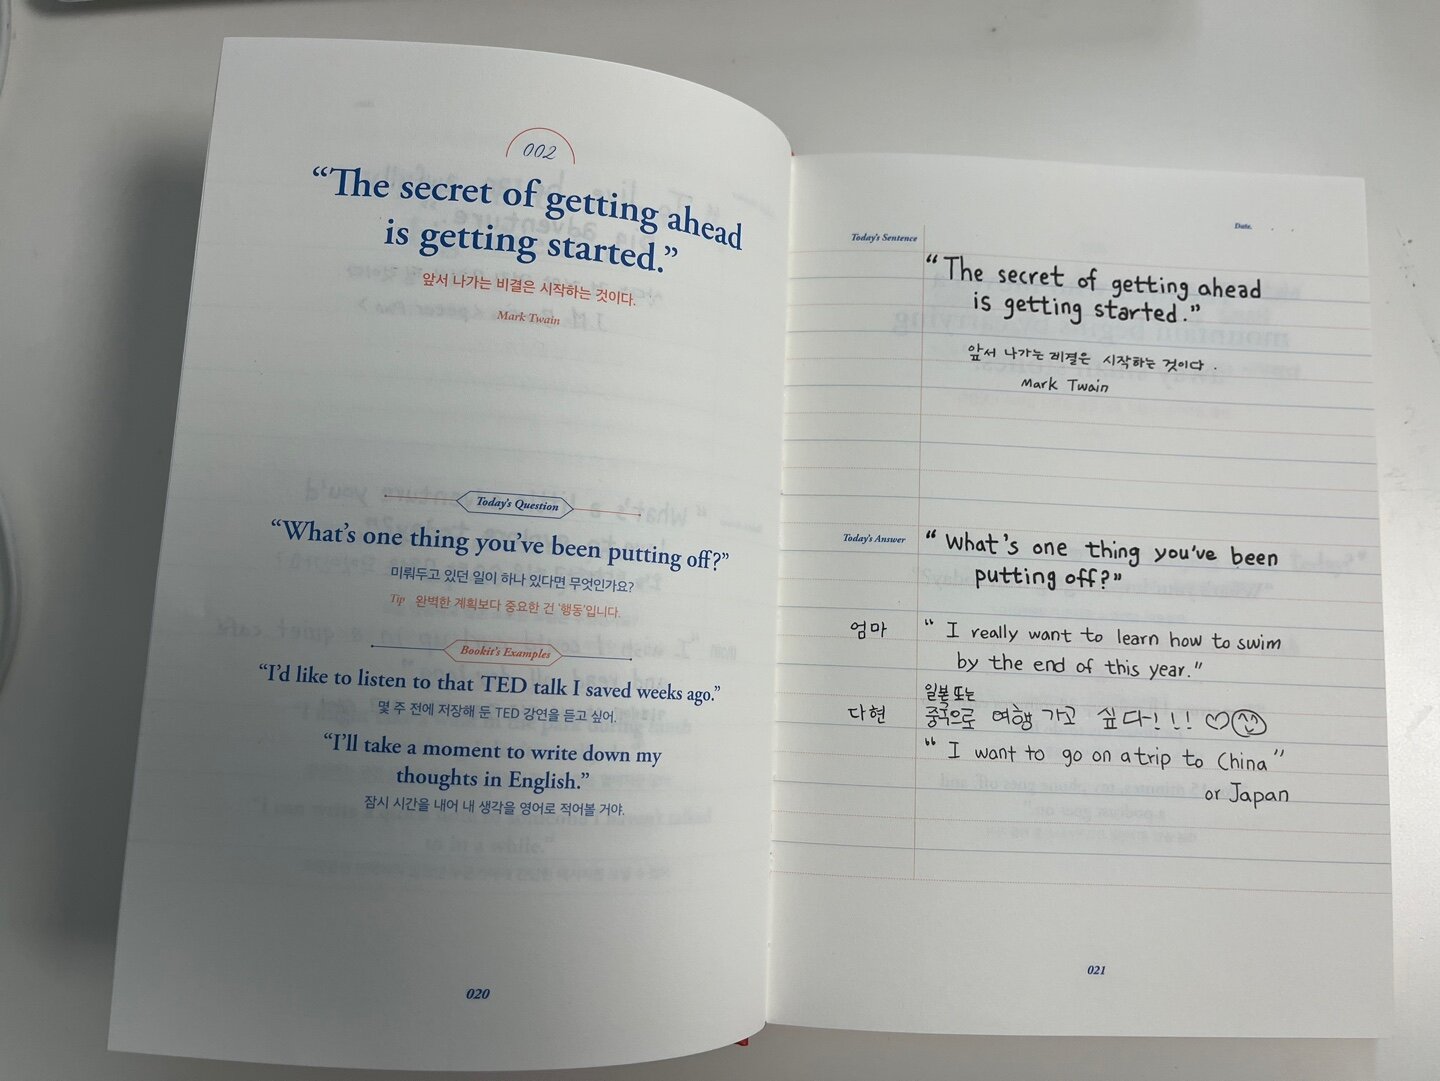 002
“The secret of getting ahead
is getting started.”
앞서 나가는 비결은 시작하는 것이다.
Mark Twain
Today's Question
“What's one thing you've been putting off?”
미뤄두고 있던 일이 하나 있다면 무엇인가요?
Tip 완벽한 계획보다 중요한 건 '행동'입니다.
Bookit's Examples
“I'd like to listen to that TED talk I saved weeks ago.”
몇 주 전에 저장해 둔 TED 강연을 듣고 싶어.
“I'll take a moment to write down my
thoughts in English.”
잠시 시간을 내어 내 생각을 영어로 적어볼 거야.
020
Date.
Today's Sentence
“The secret of getting ahead
is getting started.”
앞서 나가는 비결은 시작하는 것이다.
Mark Twain
Today's Answer
“What's one thing you've been
putting off?”
엄마 “I really want to learn how to swim
by the end of this year.”
일본 또는
다현 중국으로 여행 가고 싶다!!! ♡
“I want to go on a trip to China”
or Japan
021